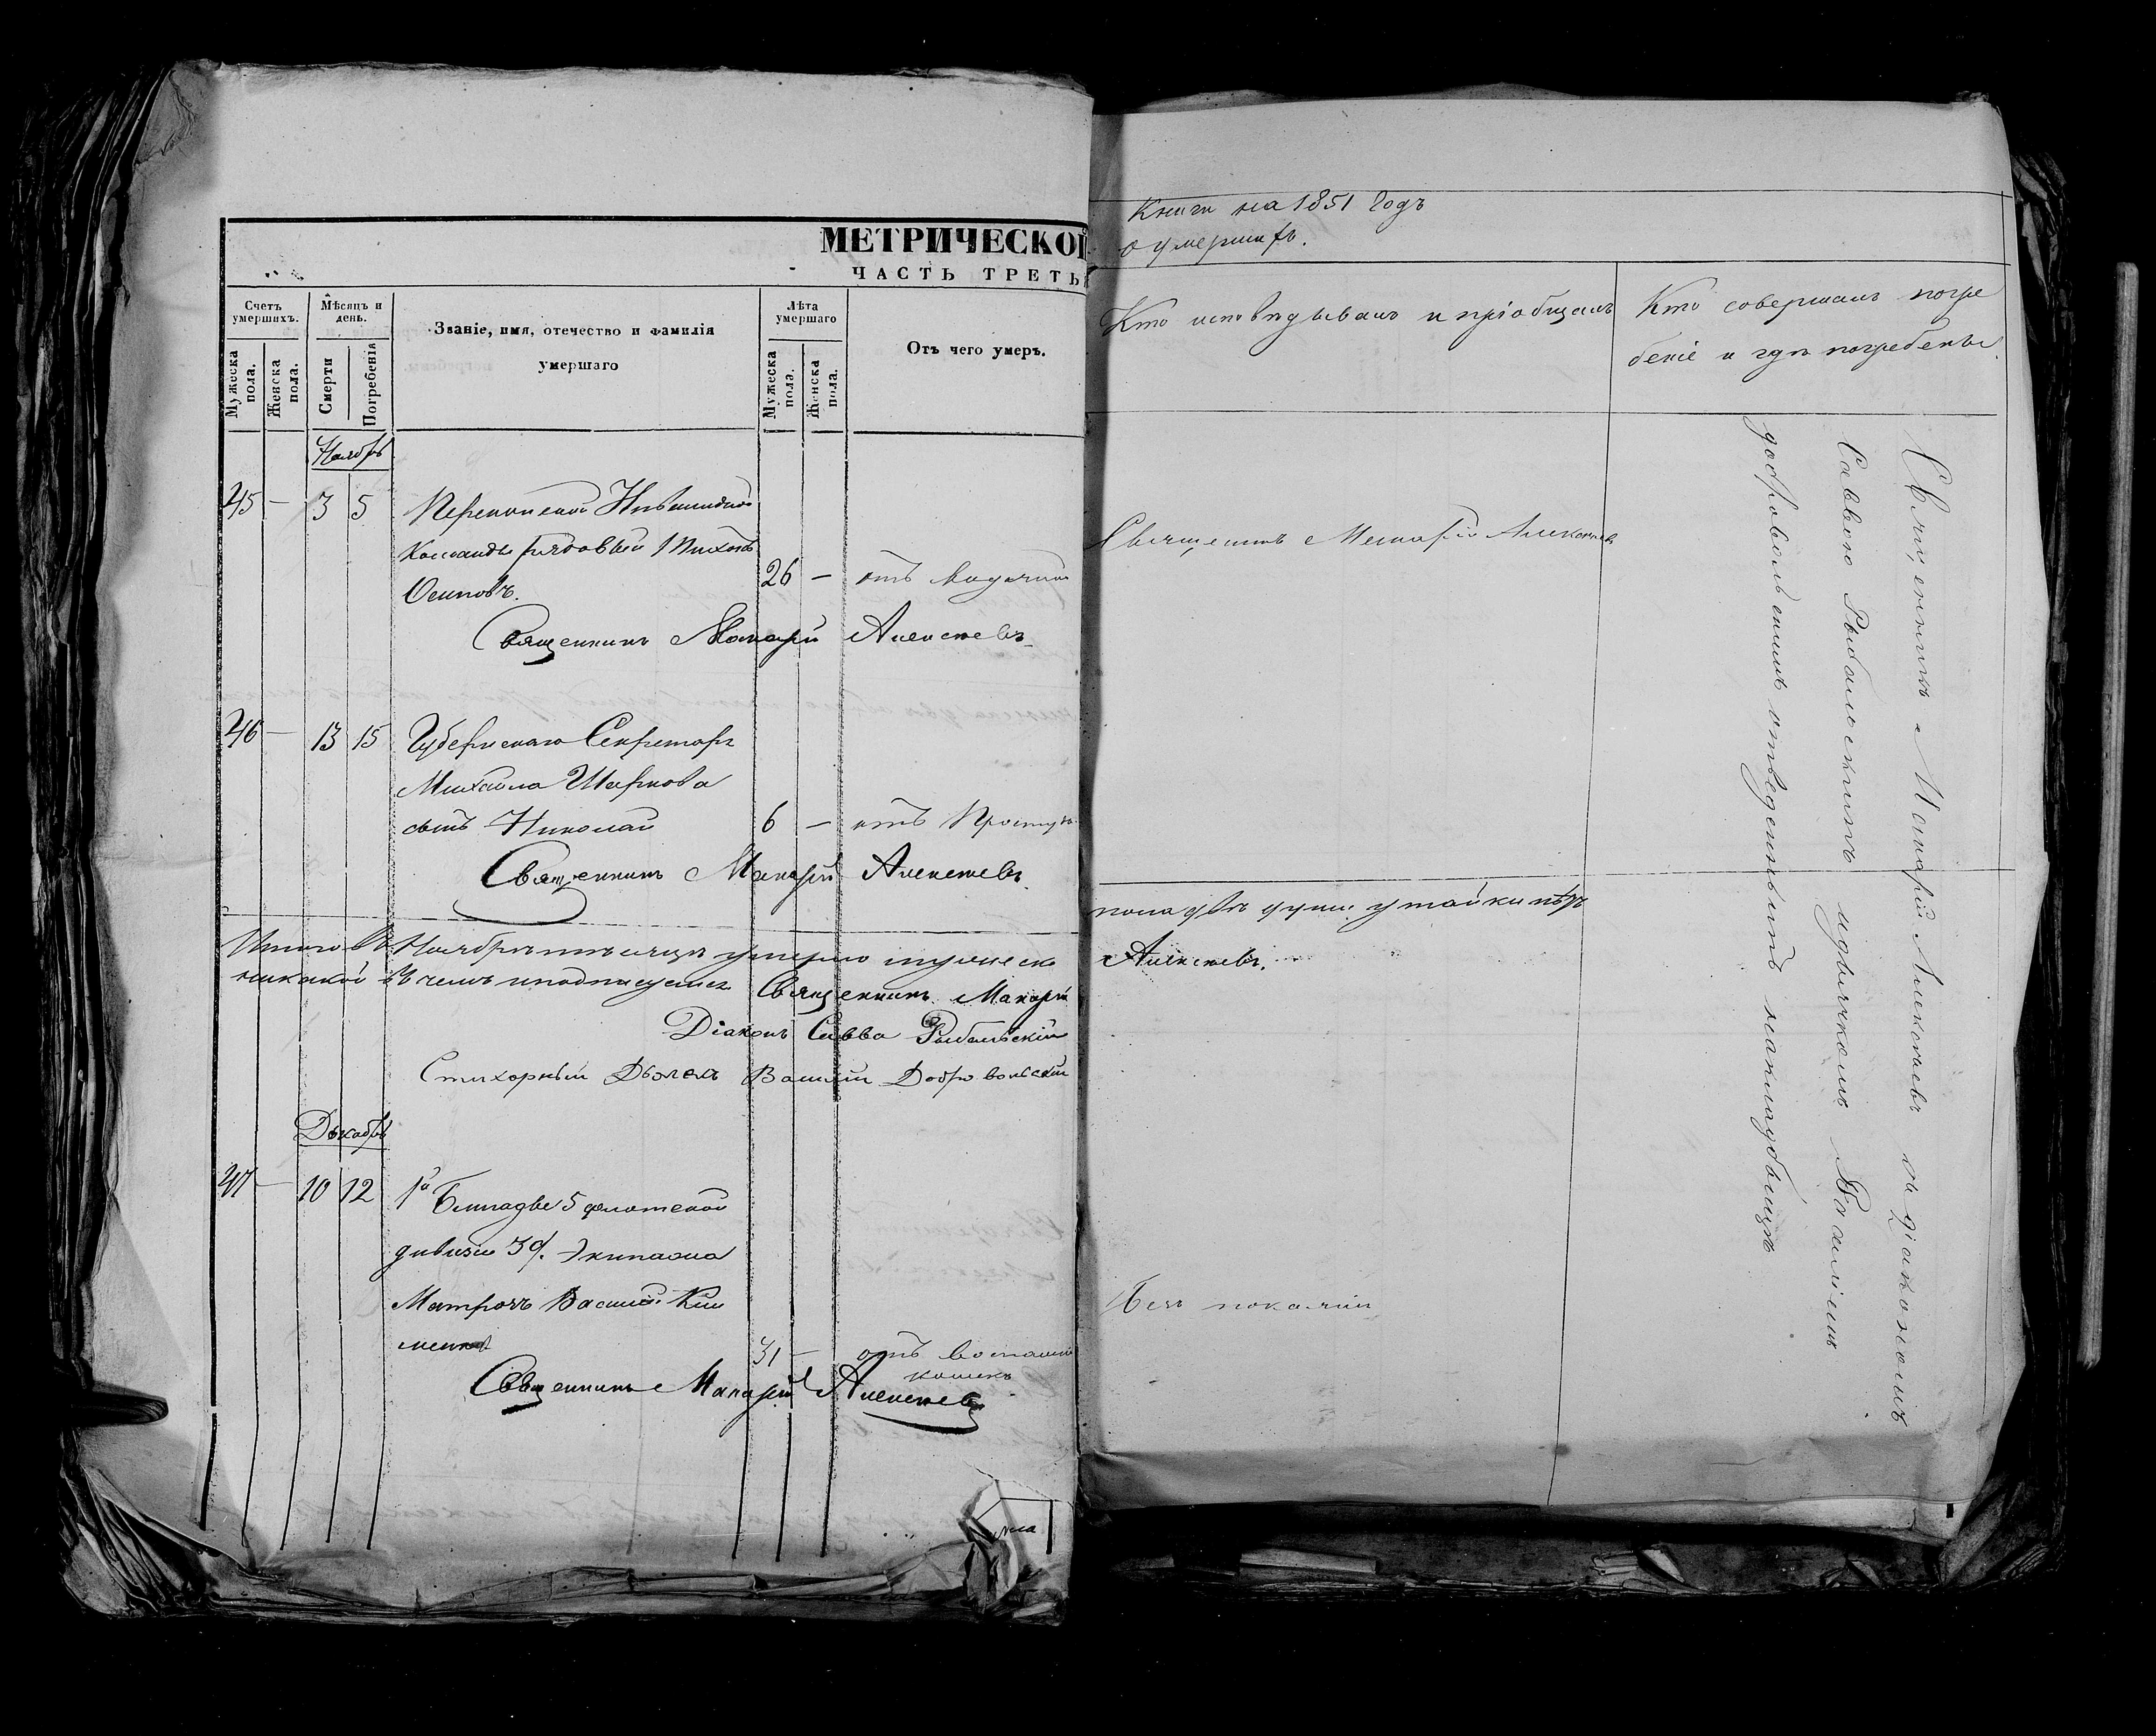 МЕТРИЧЕСКОЙ
ЧАСТЬ ТРЕТЬЯ
Счетъ умершихъ.
Мужеска пола.
Женска пола.
Мѣсяцъ и день.
Смерти
Погребенія
Званіе, имя, отечество и фамилія
умершаго
Лѣта умершаго
Мужеска пола.
Женска пола.
Отъ чего умеръ.
Ноябрь
45 — 3 5
Команды рядовый
Осиповъ. 26 — отъ
Священникъ Макарій Алексѣевъ
46 — 13 15 Губернскаго Секретаря
Михаила Шаркова
сынъ Николай 6 — отъ
Священникъ Макарій Алексѣевъ
Итого въ Ноябрѣ мѣсяцѣ умерло мужеска
никакой въ чемъ и подписуемся Священникъ Макарій
Діаконъ Савва Рыбальскій
Стихарный Дьячекъ Василій Добровольскій
Декабрь
47 — 10 12 1й 5 флотской
дивизіи 39. Экипажа
Матрозъ Василій Кли
менко 31 — отъ
Священникъ Макарій Алексѣевъ
Книги на 1851 Годъ
о умершихъ.
Кто исповѣдывалъ и пріобщалъ
Кто совершалъ погре
беніе и гдѣ погребены.
Священникъ Макарій Алексѣевъ
пола двѣ души утайки нѣтъ
Алексѣевъ.
Безъ покаянія
Священникъ Макарій Алексѣевъ съ діакономъ
Саввою Рыбальскимъ и дьячкомъ Василіемъ
Добровольскимъ на отведенномъ кладбищѣ